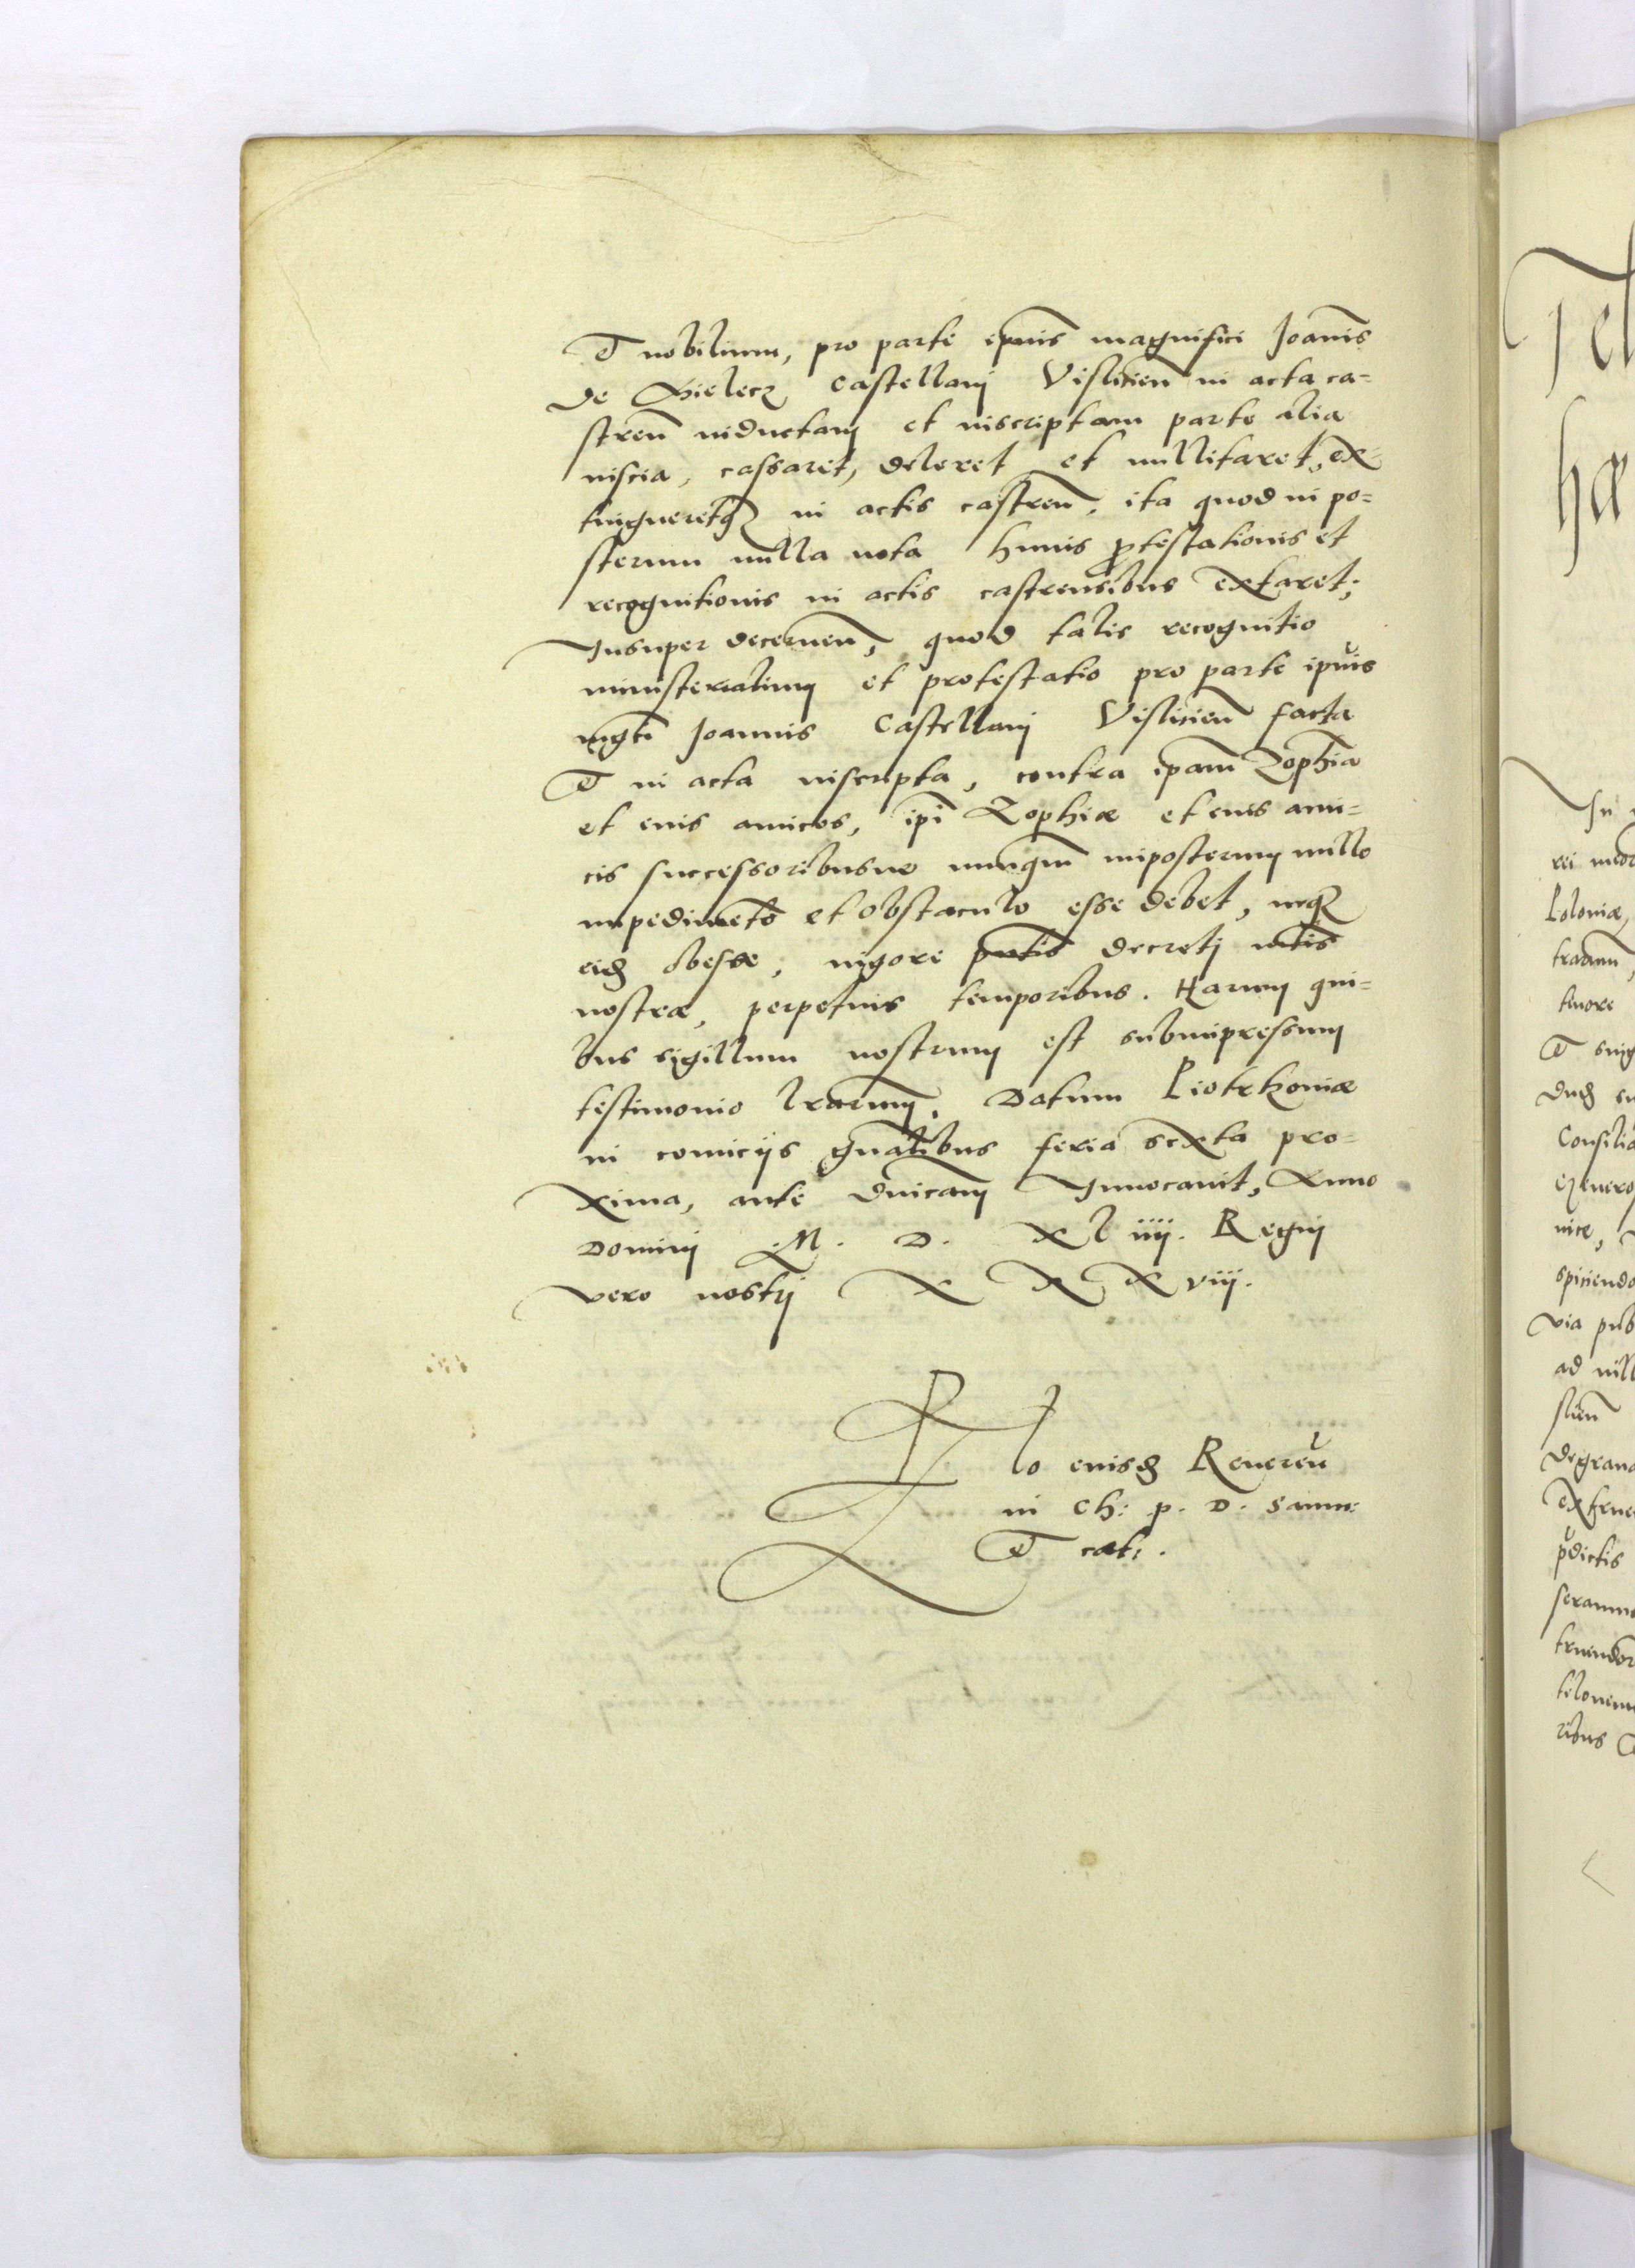 et nobilium, pro parte ipius magnifici Joanis
de Mielecz Castellanj Vislicien in acta ca=
stren inductam et inscriptam parte alia
inscia, cassaret, deleret et nullitaret, ex=
tingueretq in actis castren. ita quod in po=
sterum nulla nota huius ptestationis et
recognitionis in actis castrensibus extaret;
Insuper decernen, quod talis recognitio
ministerialium et protestatio pro parte ipius
mgci Joannis Castellanj Vislicien facta
et in acta inscripta, contra ipam Zophia
et eius amicos, ipi Zophiæ et eius ami=
cis successoribusue nunqm imposterum nullo
impedimeto et obstaculo esse debet, neq
eid obesse, vigore pntis decretj
nostræ, perpetuis temporibus. Harum qui=
bus sigillum nostrum est subimpressum
testimonio lrarum. Datum Piotrkoviæ
in comicijs gnalibus feria sexta pro=
xima, ante dnicam Inuocauit, Anno
Dominj M. D. xl iiij. Regnj
vero nostrj x x x viij.
Rlo eiusd Reueren
in Ch: p. D. Samue:
et cæt:.
Tel
hæ
In
rei
Poloniæ,
tenore
et
dud
Consilia
via pub
ad vill
slien
degrana
pdictis
ribus